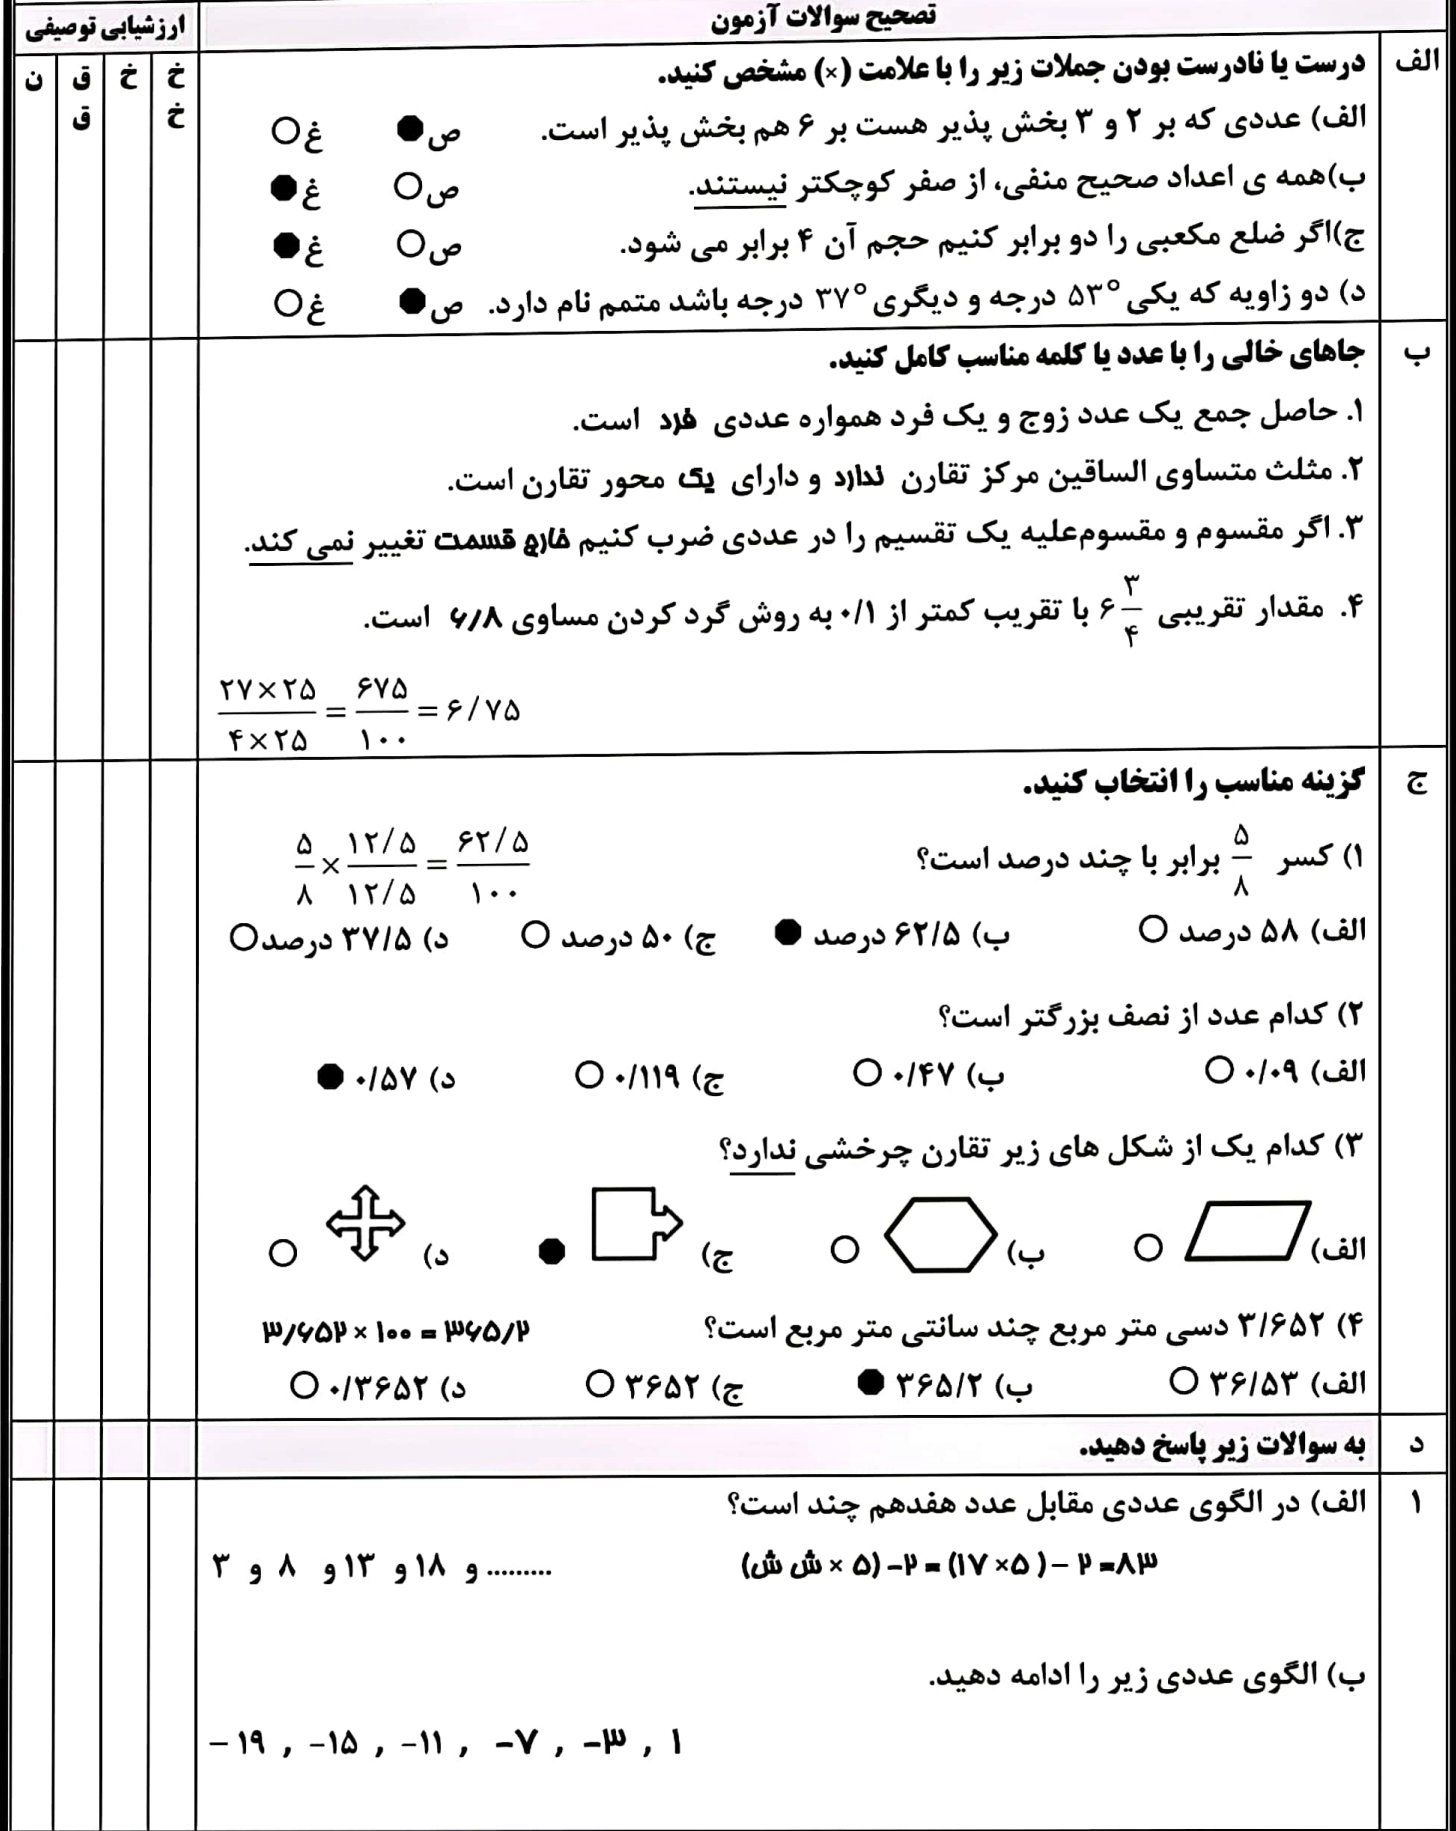 تصحیح سوالات آزمون
ارزشیابی توصیفی
الف
درست یا نادرست بودن جملات زیر را با علامت (×) مشخص کنید.
خ خ
خ
ق ق
ن
الف) عددی که بر ۲ و ۳ بخش پذیر هست بر ۶ هم بخش پذیر است. ص غ
ب)همه ی اعداد صحیح منفی، از صفر کوچکتر نیستند. ص غ
ج)اگر ضلع مکعبی را دو برابر کنیم حجم آن ۴ برابر می شود. ص غ
د) دو زاویه که یکی ۵۳° درجه و دیگری ۳۷° درجه باشد متمم نام دارد. ص غ
ب
جاهای خالی را با عدد یا کلمه مناسب کامل کنید.
۱. حاصل جمع یک عدد زوج و یک فرد همواره عددی فرد است.
۲. مثلث متساوی الساقین مرکز تقارن ندارد و دارای یک محور تقارن است.
۳. اگر مقسوم و مقسوم‌علیه یک تقسیم را در عددی ضرب کنیم خارج قسمت تغییر نمی کند.
۴. مقدار تقریبی ۶ ۳/۴ با تقریب کمتر از ۰/۱ به روش گرد کردن مساوی ۶/۸ است.
۲۷×۲۵ / ۴×۲۵ = ۶۷۵ / ۱۰۰ = ۶/۷۵
ج
گزینه مناسب را انتخاب کنید.
۱) کسر ۵/۸ برابر با چند درصد است؟
۵/۸ × ۱۲/۵ / ۱۲/۵ = ۶۲/۵ / ۱۰۰
الف) ۵۸ درصد ب) ۶۲/۵ درصد ج) ۵۰ درصد د) ۳۷/۵ درصد
۲) کدام عدد از نصف بزرگتر است؟
الف) ۰/۰۹ ب) ۰/۴۷ ج) ۰/۱۱۹ د) ۰/۵۷
۳) کدام یک از شکل های زیر تقارن چرخشی ندارد؟
الف) ب) ج) د)
۴) ۳/۶۵۲ دسی متر مربع چند سانتی متر مربع است؟ ۳/۶۵۲ × ۱۰۰ = ۳۶۵/۲
الف) ۳۶/۵۳ ب) ۳۶۵/۲ ج) ۳۶۵۲ د) ۰/۳۶۵۲
د
به سوالات زیر پاسخ دهید.
۱
الف) در الگوی عددی مقابل عدد هفدهم چند است؟
۳ و ۸ و ۱۳ و ۱۸ و .........
(ش ش × ۵) -۲ = (۱۷ ×۵ ) – ۲ =۸۳
ب) الگوی عددی زیر را ادامه دهید.
– ۱۹ , –۱۵ , –۱۱ , –۷ , –۳ , ۱